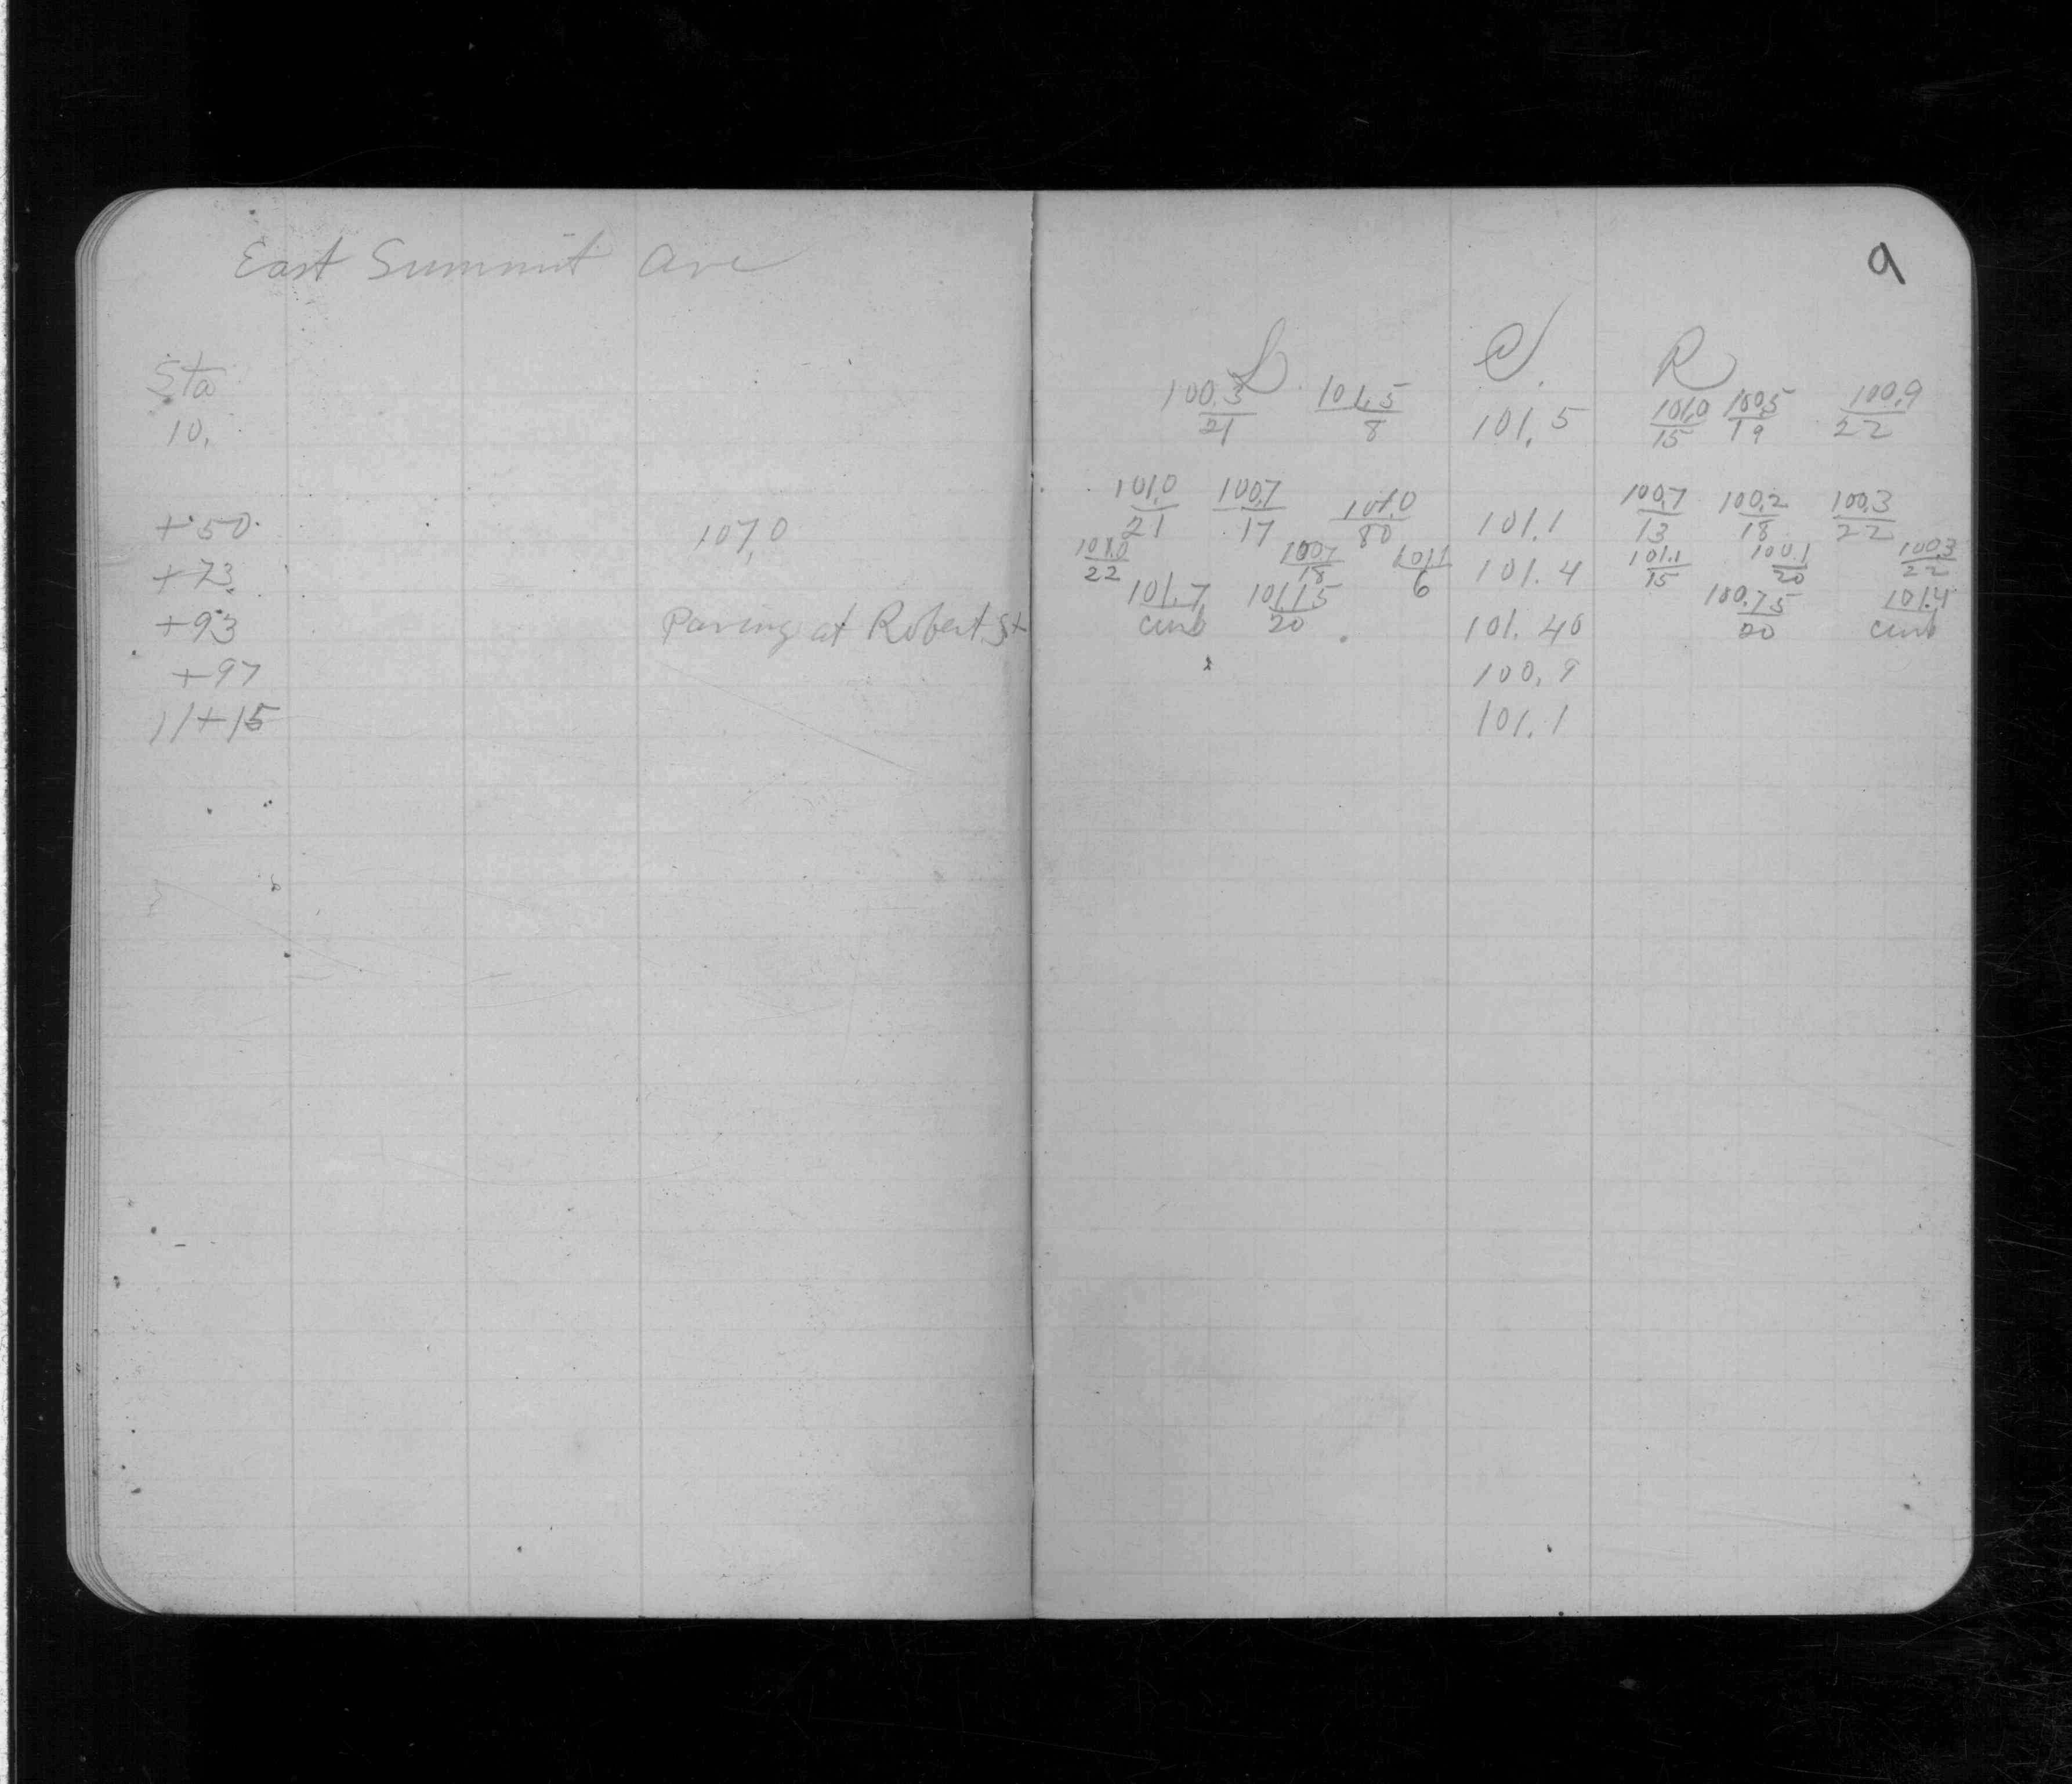 East Summit Ave
9
L C/ R
Sta
100.3 101.5 100.9
10. 21 8 101.5 101.0/15 100.5/19 22
101.0 100.7 101.0 100.7 100.2 100.3
+50 107.0 21 17 101.1 13 18 22
101.0 100.7 101.1 101.1 100.1 100.3
+73 22 18 6 101.4 15 20 22
101.7 101.15 100.75 101.4
+93 Paving at Robert St curb 20 101.40 20 curb
+97 100.9
11+15 101.1